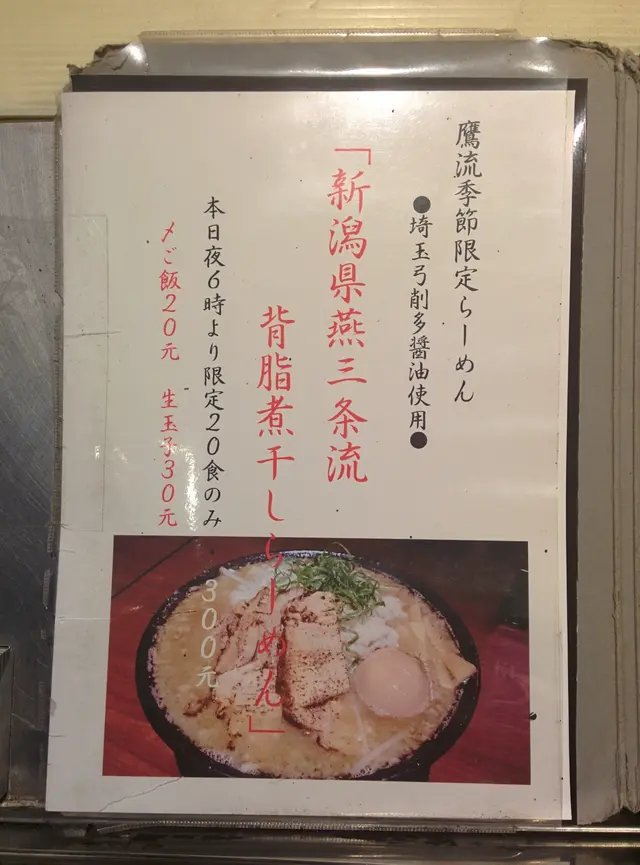 鷹流季節限定らーめん
●埼玉弓削多醤油使用●
「新潟県燕三条流
背脂煮干しらーめん」
本日夜6時より限定20食のみ
300元
〆ご飯20元 生玉子30元